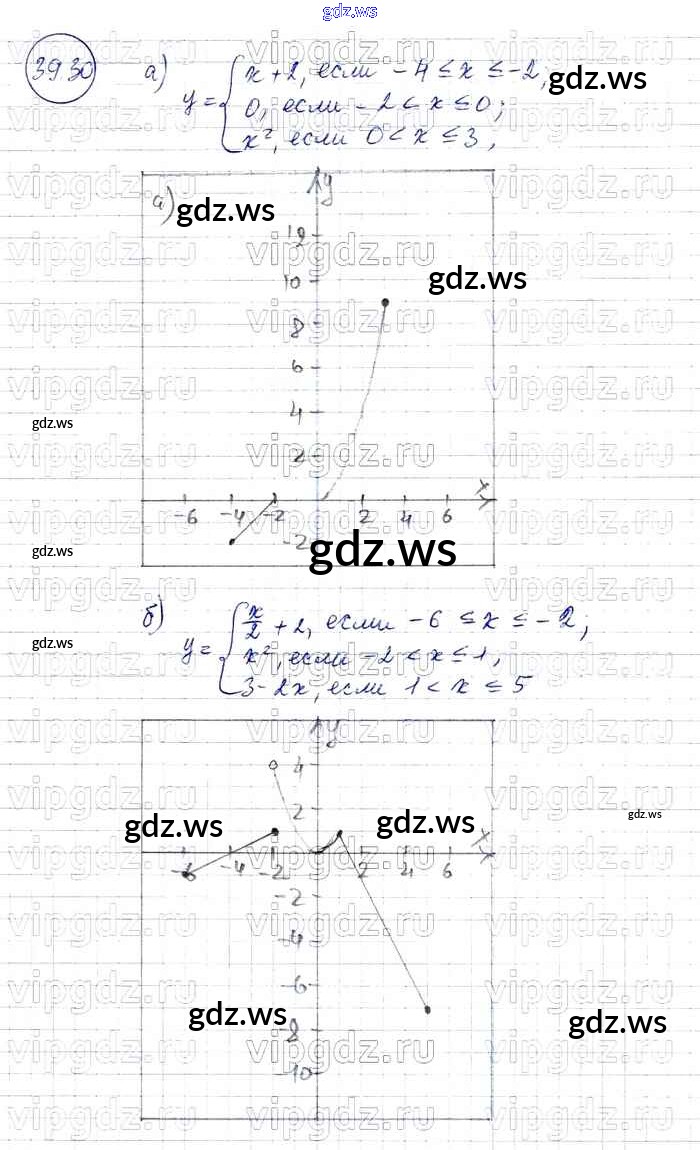 gdz.ws
3930 а) y = { x + 2, если - 4 ≤ x ≤ -2;
0, если - 2 < x ≤ 0;
x², если 0 < x ≤ 3,
gdz.ws
а) y
gdz.ws
12
gdz.ws
10
8
6
4
gdz.ws
2
x
-6 -4 -2 2 4 6
-2
gdz.ws
gdz.ws
б) y = { x/2 + 2, если -6 ≤ x ≤ -2,
x², если -2 < x ≤ 1,
3-2x, если 1 < x ≤ 5
gdz.ws
y
4
2
gdz.ws
gdz.ws
gdz.ws
x
-6 -4 -2 2 4 6
-2
-4
-6
gdz.ws
gdz.ws
-8
-10
vipgdz.ru